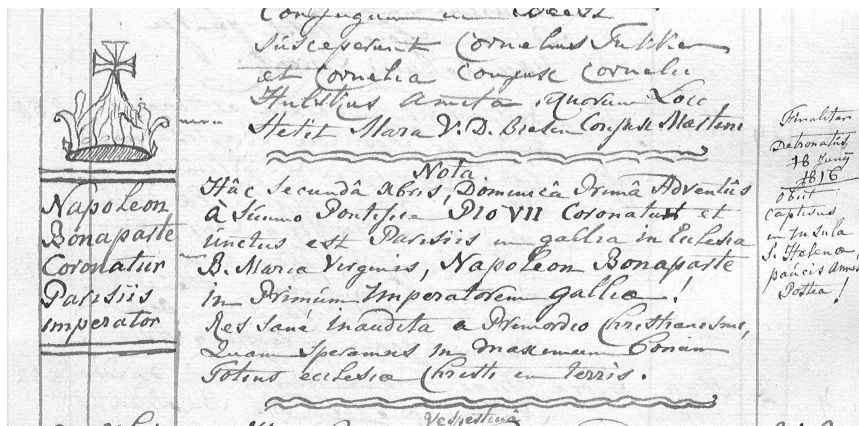 Conjugum in
susceperunt Cornelius Fukker
et Cornelia Conjuse Cornelii
Hulstius Amita, quorum Loco
stetit Mara V. D. Biesen Conjuse Martini
Nota
Hâc secundâ Xbris, Dominicâ Primâ Adventûs
à Summo Pontifice PIO VII Coronatus et
unctus est Parisiis in gallia in Ecclesia
B. Maria Virginis, Napoleon Bonaparte
in Primum Imperatorem galliæ!
Res sanè inaudita a Primordio Christianismi,
Quam speramus in maximum Bonum
Totius ecclesiæ Christi in terris.
Vespertinâ
Napoleon
Bonaparte
Coronatur
Parisiis
imperator
Finaliter
Detronatus
18 Junij
1816
obiit
captivus
in Insula
S. Helenæ,
paucis Annis
Postea!